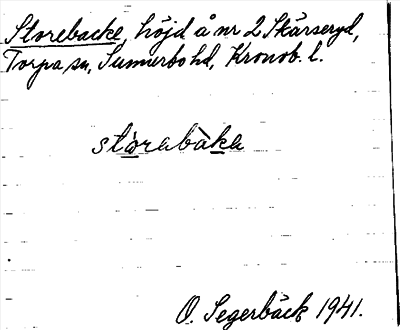 Storebacke, höjd å nr 2 Skärseryd,
Torpa sn, Sunnerbo hd, Kronob. l.
stòrabàka
O. Segerbäck 1941.